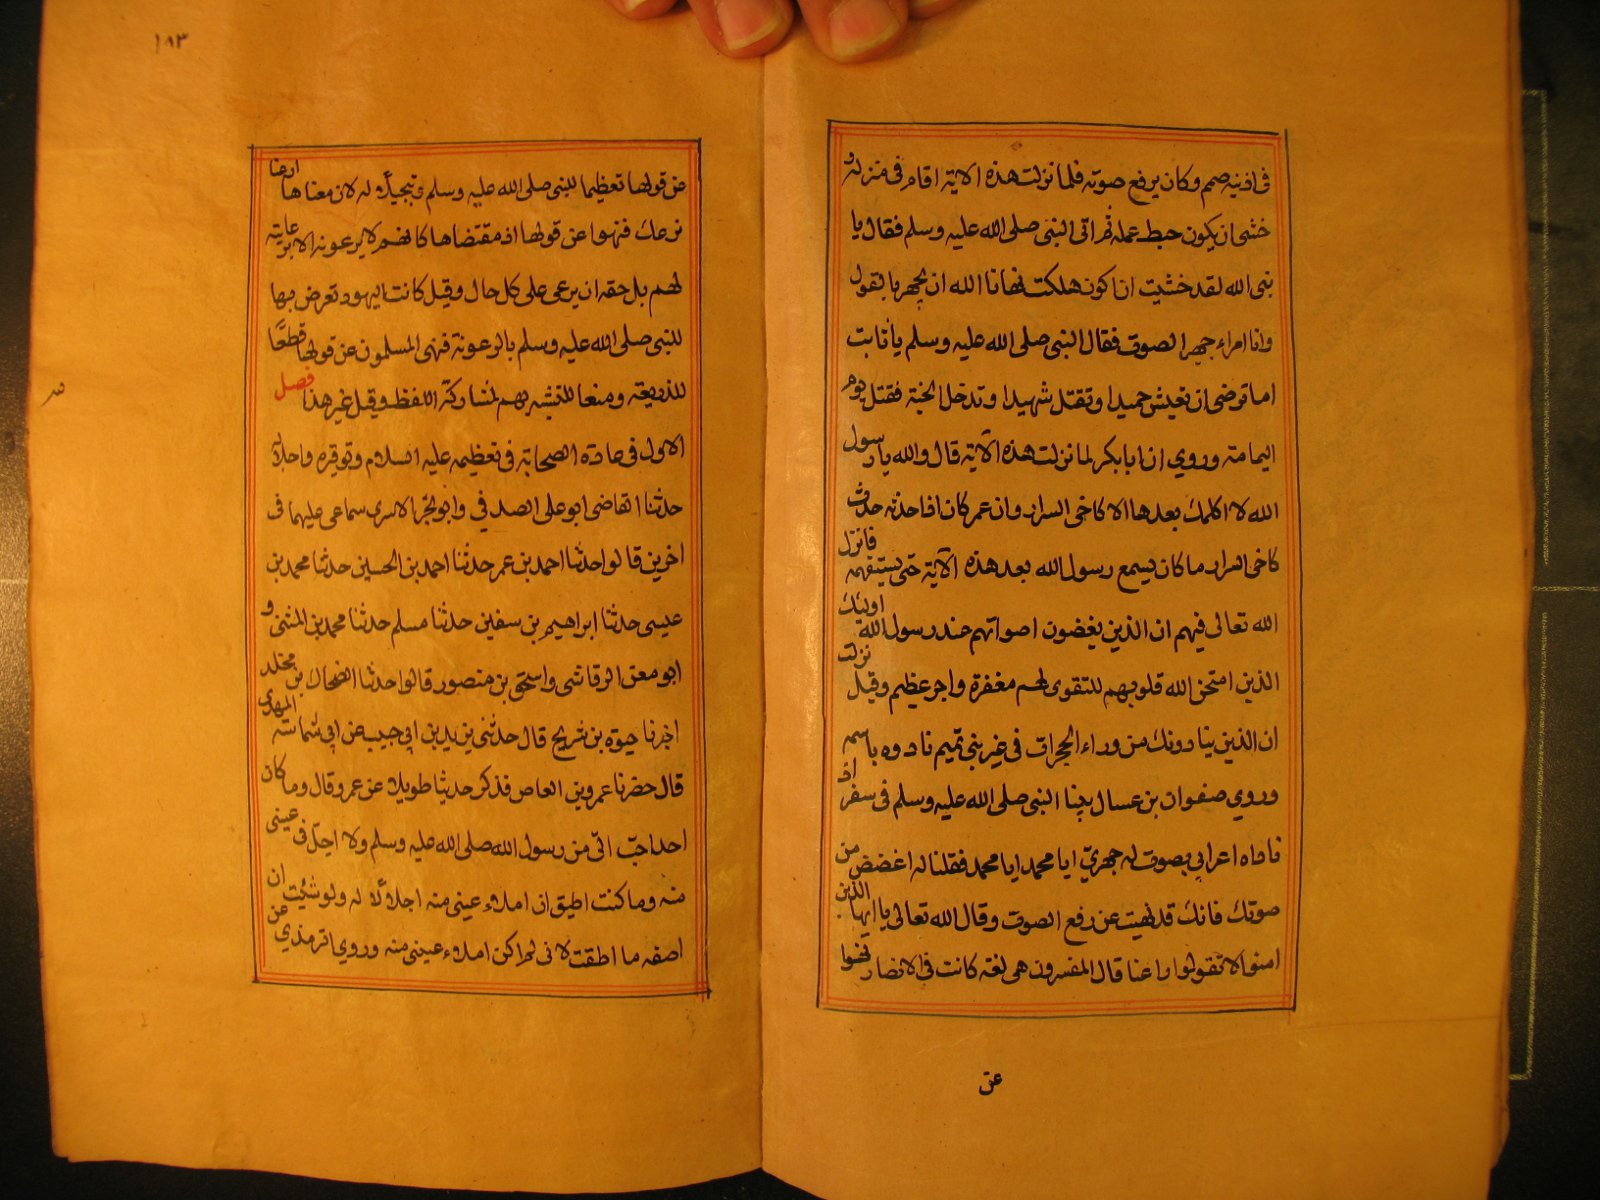 في اذنيه صمم وكان يرفع صوته فلما نزلت هذه الاية اقام في منزله و
خشي ان يكون حبط عمله ثم اتى النبي صلى الله عليه وسلم فقال يا
نبي الله لقد خشيت ان اكون هلكت نهانا الله ان نجهر بالقول
وانا امراء جهير الصوت فقال النبي صلى الله عليه وسلم يا ثابت
اما ترضى ان تعيش حميدا وتقتل شهيدا وتدخل الجنة فقتل يوم
اليمامة وروي ان ابا بكر لما نزلت هذه الآية قال والله يا رسول
الله لا اكلمك بعدها الا كاخي السرار وان عمر كان اذا حدثه حدث
كاخي السرار ما كان يسمع رسول الله بعد هذه الآية حتى يستفهمه فانزل
الله تعالى فيهم ان الذين يغضون اصواتهم عند رسول الله اوليك
الذين امتحن الله قلوبهم للتقوى لهم مغفرة واجر عظيم وقيل نزلت
ان الذين ينادونك من وراء الحجرات في غير بني تميم نادوه باسمه
وروي صفوان بن عسال بينا النبي صلى الله عليه وسلم في سفر اذ
ناداه اعرابي بصوت له جهوري ايا محمد ايا محمد فقلنا له اغضض من
صوتك فانك قد نهيت عن رفع الصوت وقال الله تعالى يا ايها الذين
امنوا لا تقولوا راعنا قال المفسرون هي لغة كانت في الانصار نهوا
عن
١٨٣
عن قولها تعظيما للنبي صلى الله عليه وسلم وتبجيلا له لان معناها ارعنا
نرعك فنهوا عن قولها اذ مقتضاها كانهم لا يرعونه الا برعايته
لهم بل حقه ان يرعى على كل حال وقيل كانت اليهود تعرض بها
للنبي صلى الله عليه وسلم بالرعونة فنهى المسلمون عن قولها قطعًا
للذريعة ومنعا للتشبه بهم لمشاركة اللفظ وقيل غير هذا فصل
الاول في عادة الصحابة في تعظيمه عليه السلام وتوقيره واجلاله
حدثنا القاضي ابو على الصدفي وابو بحر الاسدي سماعي عليهما في
اخرين قالوا حدثنا احمد بن عمر حدثنا احمد بن الحسين حدثنا محمد بن
عيسى حدثنا ابراهيم بن سفين حدثنا مسلم حدثنا محمد بن المثنى و
ابو معن الرقاشي واسحق بن منصور قالوا حدثنا الضحاك بن مخلد
اخبرنا حيوة بن شريح قال حدثني يزيد بن ابي حبيب عن ابي شماسة المهدي
قال حضرنا عمرو بن العاص فذكر حديثا طويلا عن عمرو قال وما كان
احد احب الي من رسول الله صلى الله عليه وسلم ولا اجل في عيني
منه وما كنت اطيق ان املاء عيني منه اجلالا له ولو شيت ان
اصفه ما اطقت لاني لم اكن املاء عيني منه وروي الترمذي عن